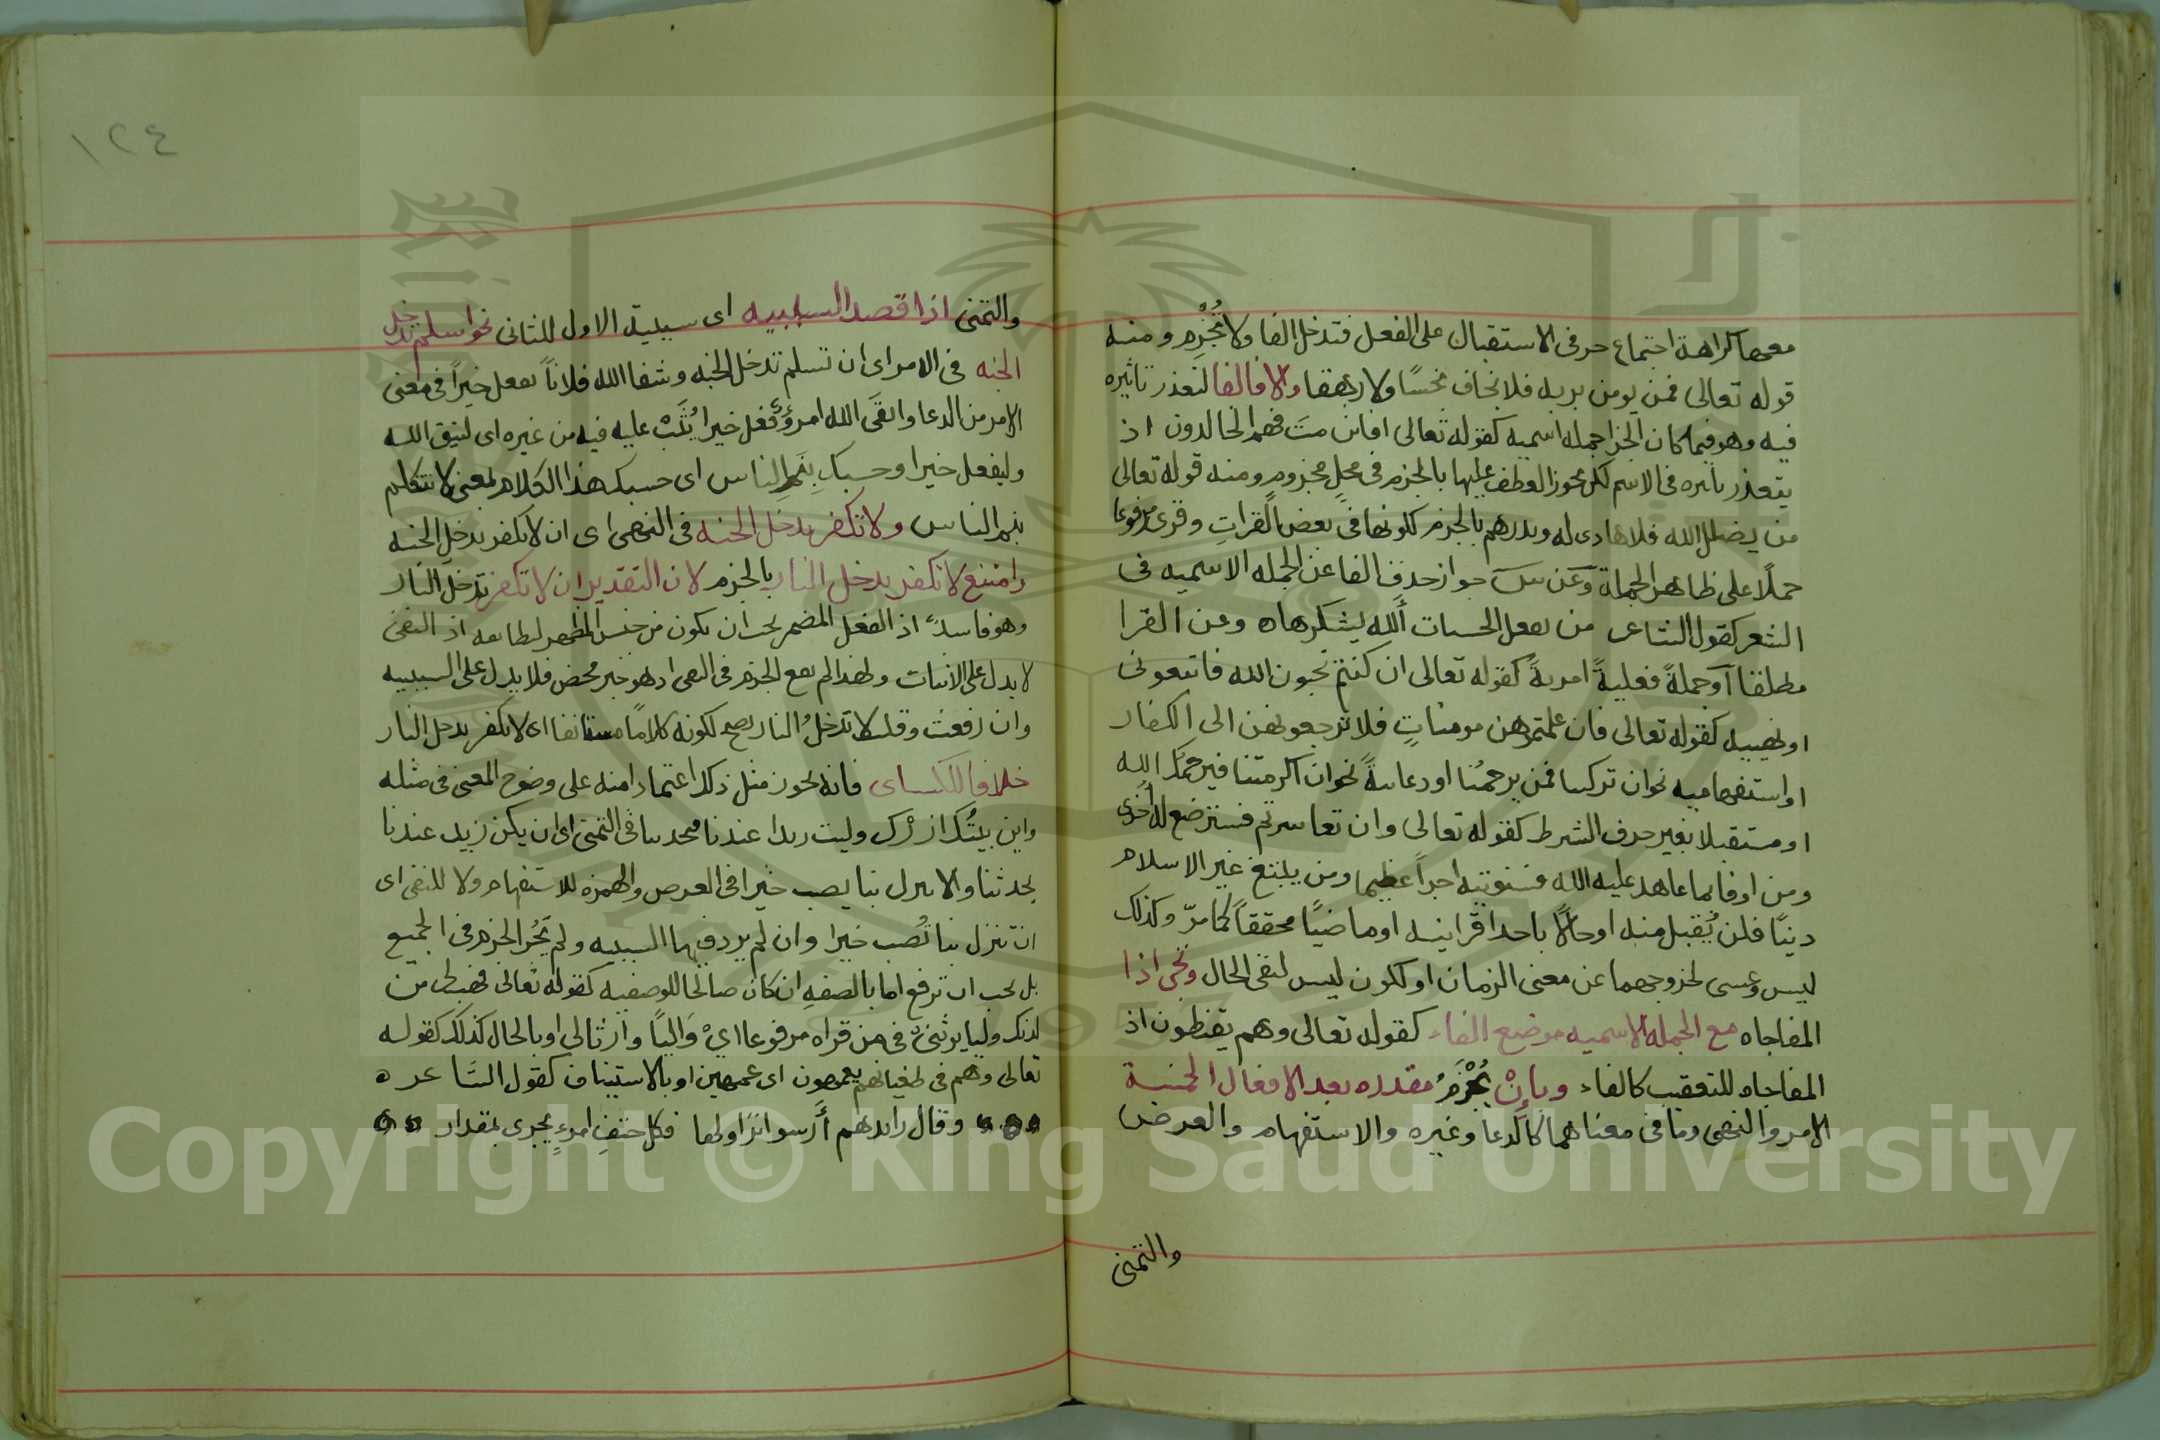 معها كراهة اجتماع حرفى الاستقبال على الفعل فتدخل الفا ولا تُجْزِم ومنه
قوله تعالى فمن يومن بربه فلا يخاف بخسًا ولا رهقا والا فالفا لتعذر تاثيره
فيه وهو فيما كان الجزا جمله اسميه كقوله تعالى افاىن متَ فهم الخالدون اذ
يتعذر تاىره فى الاسم لكن ىجوز العطف عليها بالجزم فى محلٍ مجزوم ومنه قوله تعالى
من يضلل الله فلا هادى له وىدرهم بالجزم لكونها فى بعض القراتِ وقرى مرفوعا
حملًا على ظاهر الجملة وعن س جواز حذف الفا عن الجمله الاسميه فى
الشعر كقول الشاعر من ىفعل الحسنات اَلله يشكرها ه وعن الفرا
مطلقا أو جملةً فعليةً امريةً كقوله تعالى ان كنتم تحبون الله فاتبعونى
او نهييه كقوله تعالى فان علمتموهن مومناتٍ فلا ترجعوهن الى الكفار
او استفهاميه نحو ان تركىىا فمن يرحمُنا او دعاىىةً نحو ان اكرمتنا فيرحمك الله
او مستقبلا بغير حرف الشرط كقوله تعالى وان تعاسرتم فسترضع له اُخرى
ومن اوفا بما عاهد عليه الله فسنوتيه اجراً عظيما ومن يبتغ غير الاسلام
دينًا فلن يُقبل منه او حالًا باحد اقراينه او ماضيًا محققاً كما مرّ وكذلك
ليس وعسى لخروجهما عن معنى الزمان او لكون ليس لنفى الحال وتجى اذا
المفاجاه مع الجمله الاسميه موضع الفاء كقوله تعالى وهم يقنطون اذ
المفاجاه للتعقيب كالفاء وبإنْ يُجْزَمُ مقدره بعد الافعال الخمسة
الامر والنهى وما فى معناهما كالدعا وغيره والاستفهام والعرض
والتمنى
١٢٤
والتمنى اذا قصد السببيه اى سببية الاول للثانى نحو اسلم تدخل
الجنه فى الامر اى ان تسلم تدخل الجنه وشفا الله فلاناً ىفعل خيراً فى معنى
الامر من الدعا واتقَى الله امرؤٌ فعل خيرا يُثَبْ عليه فيه من غيره اى ليتق الله
وليفعل خيرا وحسبك ينم الناس اى حسبك هذا الكلام بمعنى لا تتكلم
ينم الناس ولا تكفر تدخل الجنه فى النهى اى ان لا تكفر تدخل الجنه
وامتنع لا تكفر تدخل النار بالجزم لان التقدير ان لا تكفر تدخل النار
وهو فاسدٌ اذ الفعل المضمر ىجب ان ىكون من جنس المظهر لىطابقه اذ النفى
لا يدل على الاثبات ولهذا لم ىقع الجزم فى النفى اذ هو خبر محض فلا يدل على السببيه
وان رفعت وقلت لا تدخلُ النار يصح لكونه كلامًا مستانفا اى لا تكفر تدخل النار
خلافا للكساى فانه ىجوز مثل ذلك اعتمادا منه على وضوح المعنى فى مثله
واين بيتُك ازرْك وليت زىدا عندنا ىحدىنا فى التمنى اى ان يكن زيد عندنا
يحدثنا والا ىنزل بنا يصب خيرا فى العرض والهمزه للاستفهام ولا للنفى اى
ان تنزل بنا تُصب خيرا وان لم يرد فيها السببيه ولم يَجُز الجزم فى الجميع
بل ىجب ان ترفع اما بالصفه ان كان صالحا للوصفيه كقوله تعالى فهب لى من
لدنك وليا يرثنى فى من قراه مرفوعا اىْ وَليًا وارثا لى او بالحال كذلك كقوله
تعالى وهم فى طغيانهم يعمهون اى عمهين او بالاستيناف كقول الشاعر ه
وقال رايدهم أَرسوا نزاولها فكل حتفِ امرءٍ يجرى بمقدار
Copyright © King Saud University